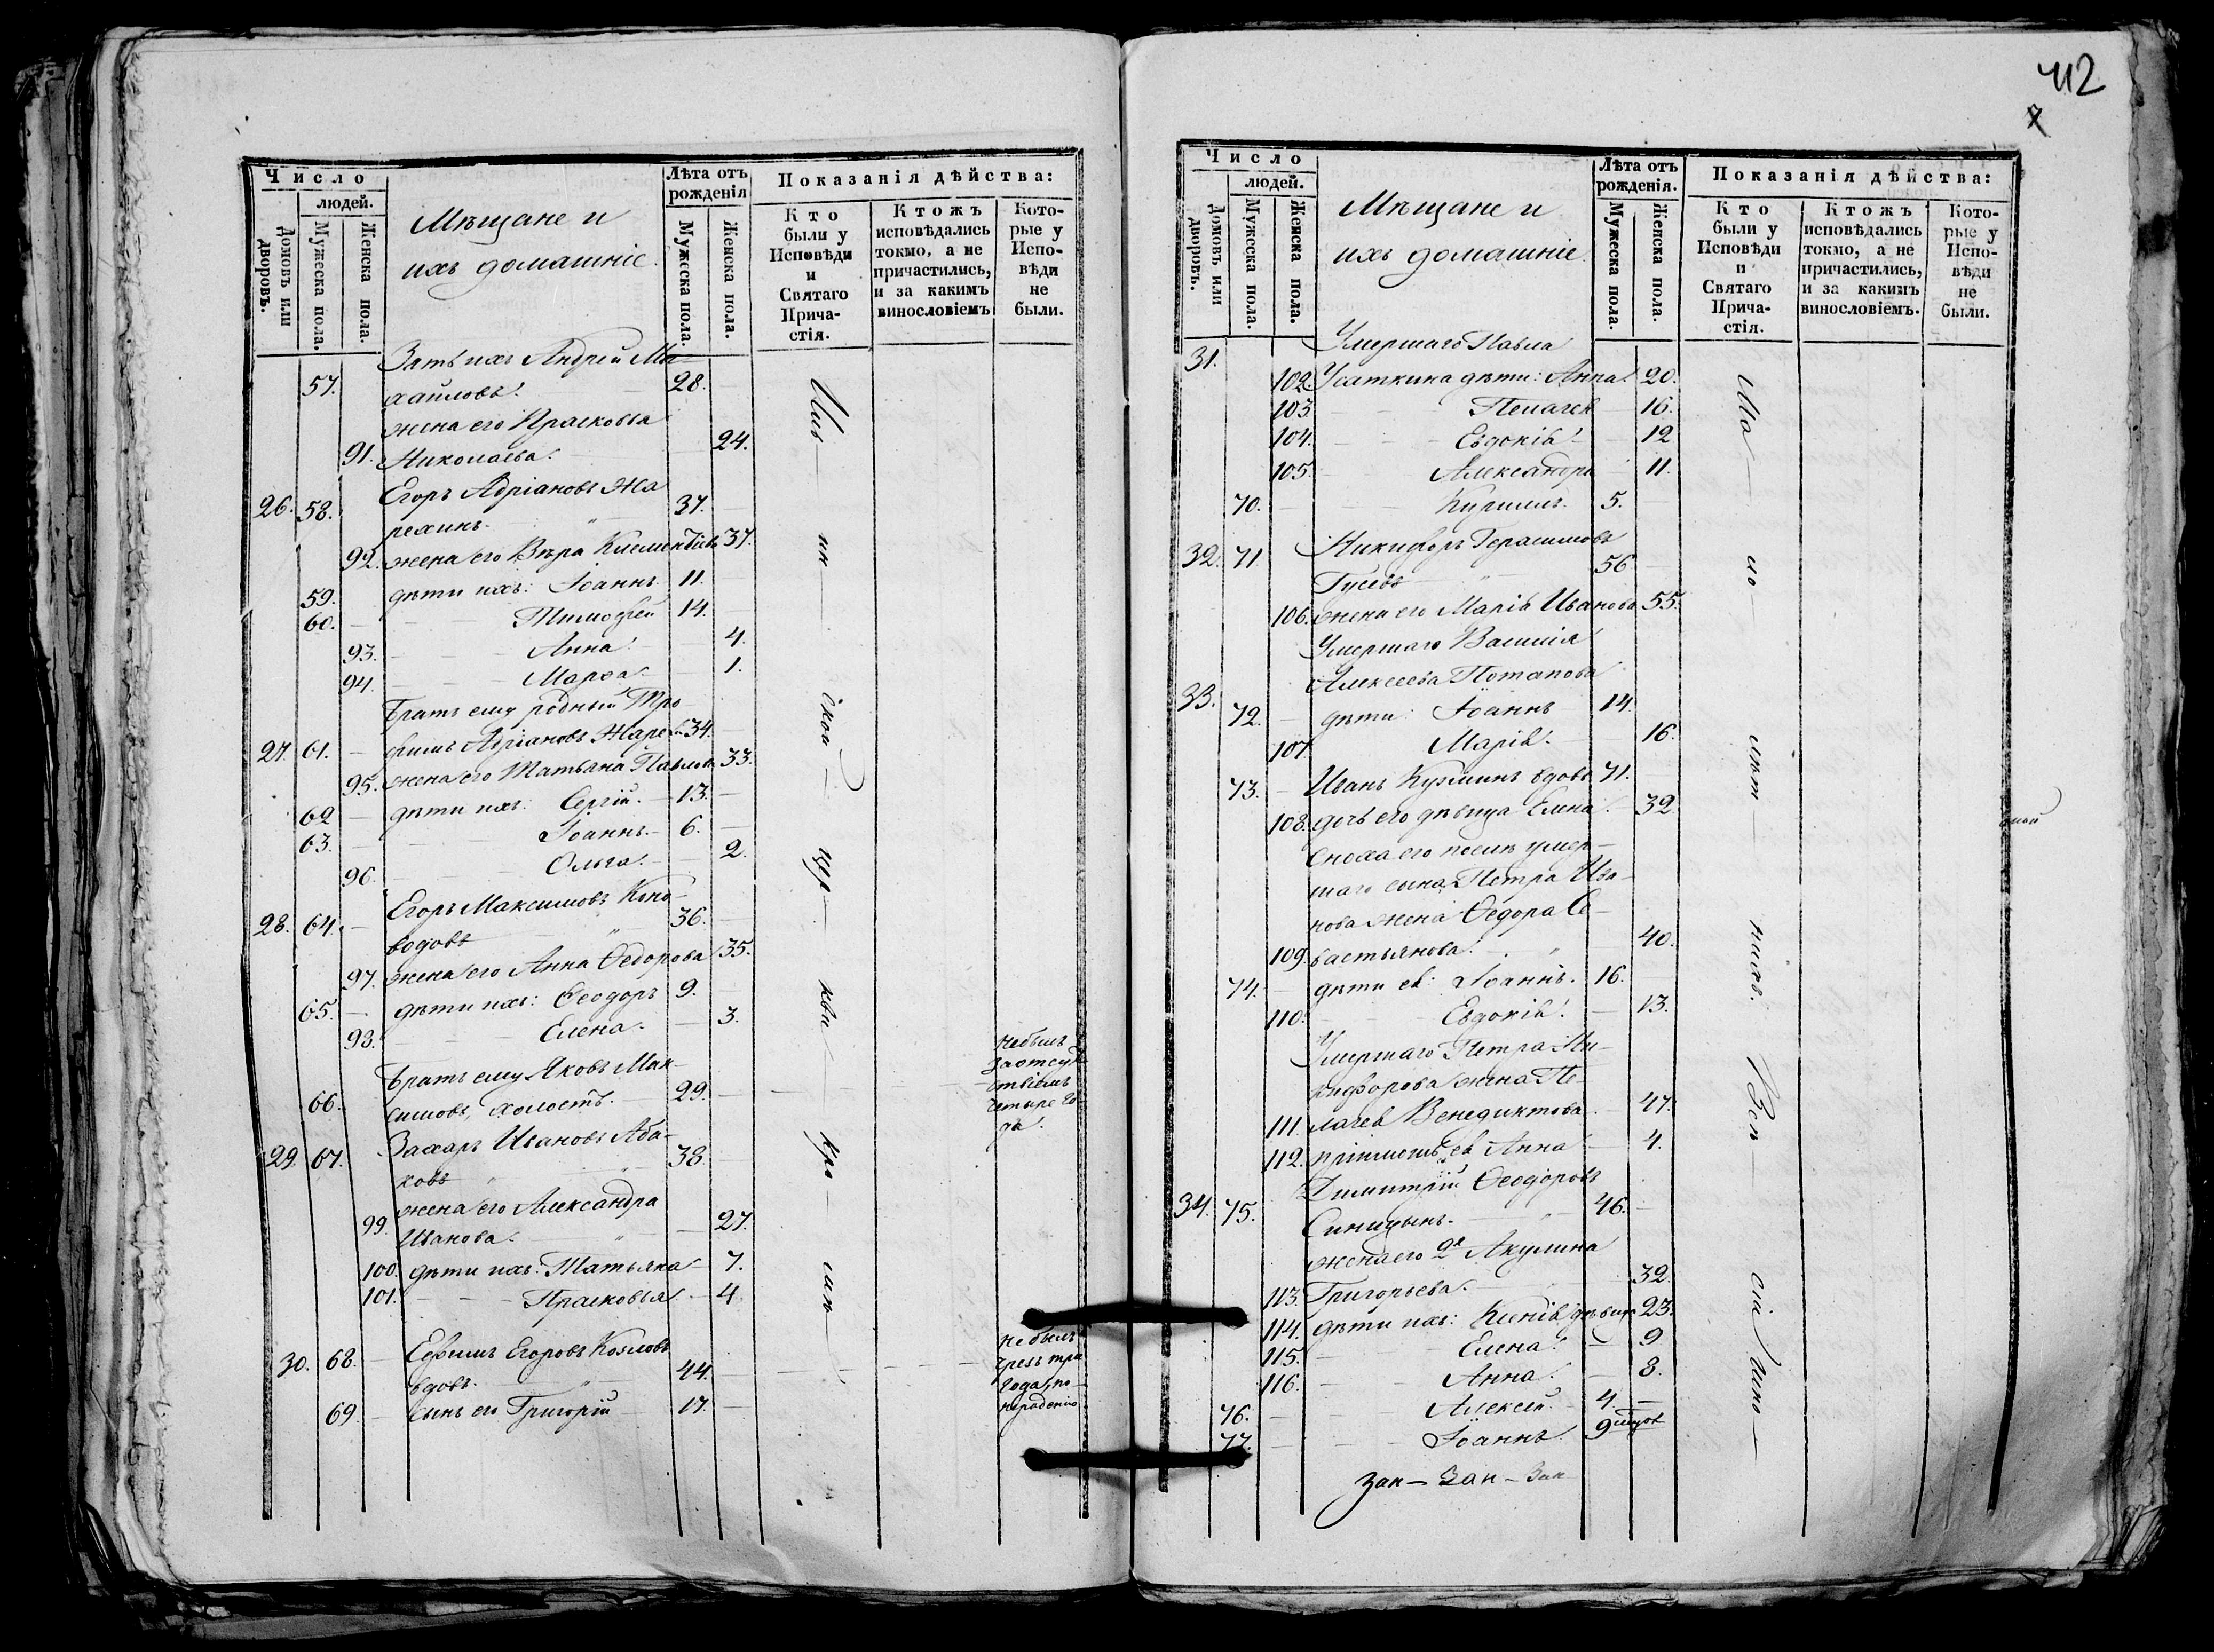 412
Число
людей.
Домовъ или дворовъ.
Мужеска пола.
Женска пола.
Мѣщане и
ихъ домашніе.
Лѣта отъ рожденія
Мужеска пола.
Женска пола.
Показанія дѣйства:
Кто были у Исповѣди и Святаго Прича-стія.
Ктожъ исповѣдались токмо, а не причастились, и за какимъ винословіемъ
Кото-рые у Испо-вѣди не были.
Зять ихъ Андрей Ми-
57. хайловъ. 28.
жена его Прасковья
91. Николаева. 24.
26. 58. Егоръ Адріановъ Жа
рехинъ. 37.
92. жена его Вѣра Клементьева 37.
59. дѣти ихъ: Іоаннъ 11.
60. Тимофей 14.
93. Анна. 4.
94. Марѳа 1.
Братъ ему родный Тро-
27. 61. фимъ Адріановъ Жаре 34.
95. жена его Татьяна Павлова 33.
62 дѣти ихъ: Сергій. 13.
63. Іоаннъ. 6.
96. Ольга. 2.
Егоръ Максимовъ Коно-
28. 64. водовъ 36.
97. жена его Анна Ѳедорова 35.
65. дѣти ихъ: Ѳеодоръ 9.
98. Елена. 3.
Братъ ему Яковъ Мак-
66. симовъ, холостъ. 29.
небылъ за отсут-ствіемъ четыре го-да.
29. 67. Захаръ Ивановъ Аба-
ковъ 38.
жена его Александра
99. Иванова. 27.
100. дѣти ихъ: Татьяна 7.
101. Прасковья 4
30. 68. Ефимъ Егоровъ Козловъ
вдовъ. 44.
небылъ чрезъ три года, по нерадѣнію
69 сынъ его Григорій 17.
кой цер- кви
Число
людей.
Домовъ или дворовъ.
Мужеска пола.
Женска пола.
Мѣщане и
ихъ домашніе.
Лѣта отъ рожденія.
Мужеска пола.
Женска пола.
Показанія дѣйства:
Кто были у Исповѣди и Святаго Прича-стія.
Ктожъ исповѣдались токмо, а не причастились, и за какимъ винословіемъ.
Кото-рые у Испо-вѣди не были.
31. Умершаго Павла
102. Усаткина дѣти: Анна 20.
103. Пелагея 16.
104. Евдокія 12
105. Александра 11.
70. Кириллъ. 5.
32. 71 Никифоръ Герасимовъ
Гусевъ 56
106. жена его Марія Иванова 55.
Умершаго Василія
33. Алексеева Потапова
72. дѣти: Іоаннъ 14.
107. Марія. 16.
73. Иванъ Кузминъ вдовъ 71.
108. дочь его дѣвица Елена 32
Сноха его послѣ умер-
шаго сына Петра Ива-
нова жена Ѳедора Се-
109. вастьянова. 40.
74. дѣти ея: Іоаннъ. 16.
110. Евдокія. 13.
Умершаго Петра Ни-
кифорова жена Пе-
111. лагея Венедиктова 47.
112. пріимышъ ея Анна 4.
Димитрій Ѳеодоровъ
34. 75. Синицынъ. 46.
жена его 2я Акулина
113. Григорьева. 32.
114. дѣти ихъ: Ксенія дѣвица 23.
115. Елена. 9
116. Анна. 8.
76. Алексей. 4.
77. Іоаннъ. 9 мцов
Зак- Зак- Зак